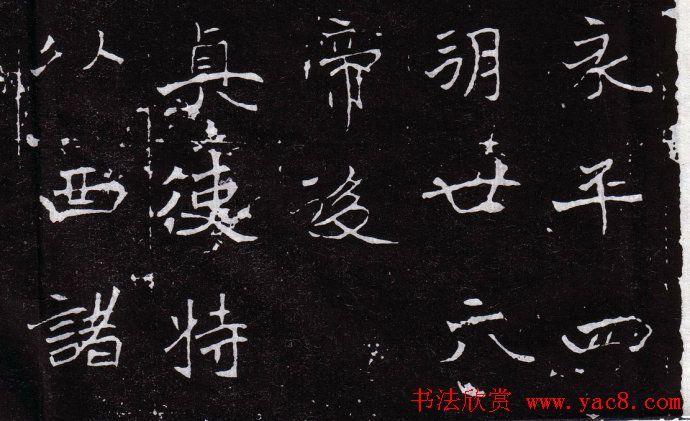 永平四
明廿六
帝後
真使特
以西諸
书法欣赏 www.yac8.com